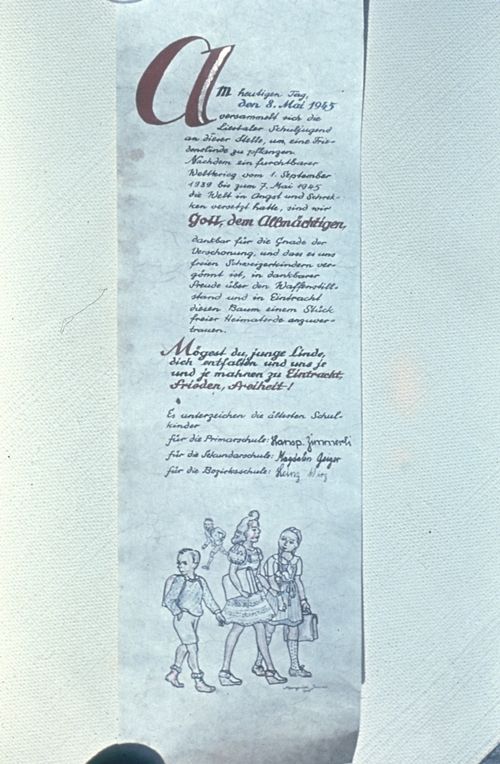 Am heutigen Tag,
den 8. Mai 1945
versammelt sich die
Liestaler Schuljugend
an dieser Stelle, um eine Frie-
denslinde zu pflanzen.
Nachdem ein furchtbarer
Weltkrieg vom 1. September
1939 bis zum 7. Mai 1945
die Welt in Angst und Schrek-
ken versetzt hatte, sind wir
Gott, dem Allmächtigen,
dankbar für die Gnade der
Verschonung, und dass es uns
freien Schweizerkindern ver-
gönnt ist, in dankbarer
Freude über den Waffenstill-
stand und in Eintracht
diesen Baum einem Stück
freier Heimaterde anzuver-
trauen.
Mögest du, junge Linde,
dich entfalten und uns je
und je mahnen zu Eintracht,
Frieden, Freiheit!
Es unterzeichen die ältesten Schul-
kinder
für die Primarschule: Hansp. Zimmerli
für die Sekundarschule: Magdalen Geiger
für die Bezirksschule: Heinz Wirz